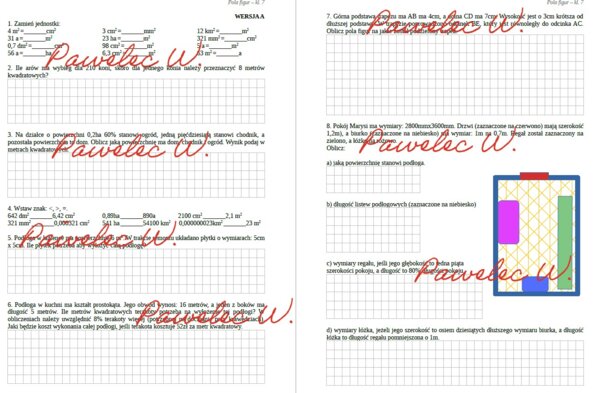 Pola figur – kl. 7
WERSJA A
1. Zamień jednostki:
4 m² =_______cm²
3 cm² =_______mm²
12 km² =_______m²
31 a =_______m²
23 ha =_______m²
321 mm² =_______cm²
0,7 dm² =_______cm²
98 cm² =_______m²
5 a =_______m²
56 a =_______ha
6,3 cm²
53 m² =_______a
2. Ile arów ma wybieg dla 210 koni, skoro dla jednego konia należy przeznaczyć 8 metrów
kwadratowych?
3. Na działce o powierzchni 0,2ha 60% stanowi ogród, jedną pięćdziesiątą stanowi chodnik, a
pozostała powierzchnia to dom. Oblicz jaką powierzchnię ma dom, chodnik i ogród. Wynik podaj w
metrach kwadratowych.
Pawelec W.
4. Wstaw znak: <, >, =.
642 dm²_______6,42 cm²
0,89ha_______890a
2100 cm²_______2,1 m²
321 mm²_______0,000321 cm²
541 ha_______54100 km²
0,000000023km²_______23 m²
5. Podłoga w łazience ma powierzchnię m². W trakcie remontu układano płytki o wymiarach: 5cm
x 5cm. Ile płytek potrzeba aby wyłożyć całą podłogę?
Pawelec W.
6. Podłoga w kuchni ma kształt prostokąta. Jego obwód wynosi: 16 metrów, a jeden z boków ma
długość 5 metrów. Ile metrów kwadratowych terakoty potrzeba na wyłożenie tej podłogi? W
obliczeniach należy uwzględnić 8% terakoty więcej
Jaki będzie koszt wykonania całej podłogi, jeśli terakota kosztuje 52zł za metr kwadratowy.
Pawelec W.
Pola figur – kl. 7
7. Górna podstawa trapezu ma AB ma 4cm, a dolna CD ma 7cm Wysokość jest o 3cm krótsza od
dłuższej podstawy. W trapezie poprowadzono odcinek BE, który jest równoległy do odcinka AC.
Oblicz pola figur na jakie został podzielony trapez.
Pawelec W.
8. Pokój Marysi ma wymiary: 2800mmx3600mm. Drzwi (zaznaczone na czerwono) mają szerokość
1,2m), a biurko (zaznaczone na niebiesko) ma wymiar: 1m na 0,7m. Regał został zaznaczony na
zielono, a łóżko na różowo.
Oblicz:
Pawelec W.
a) jaką powierzchnię stanowi podłoga.
b) długość listew podłogowych (zaznaczone na niebiesko)
c) wymiary regału, jeśli jego głębokość to jedna piąta
szerokości pokoju, a długość to 80% długości pokoju.
Pawelec W.
d) wymiary łóżka, jeżeli jego szerokość to osiem dziesiątych dłuższego wymiaru biurka, a długość
łóżka to długość regału pomniejszona o 1m.